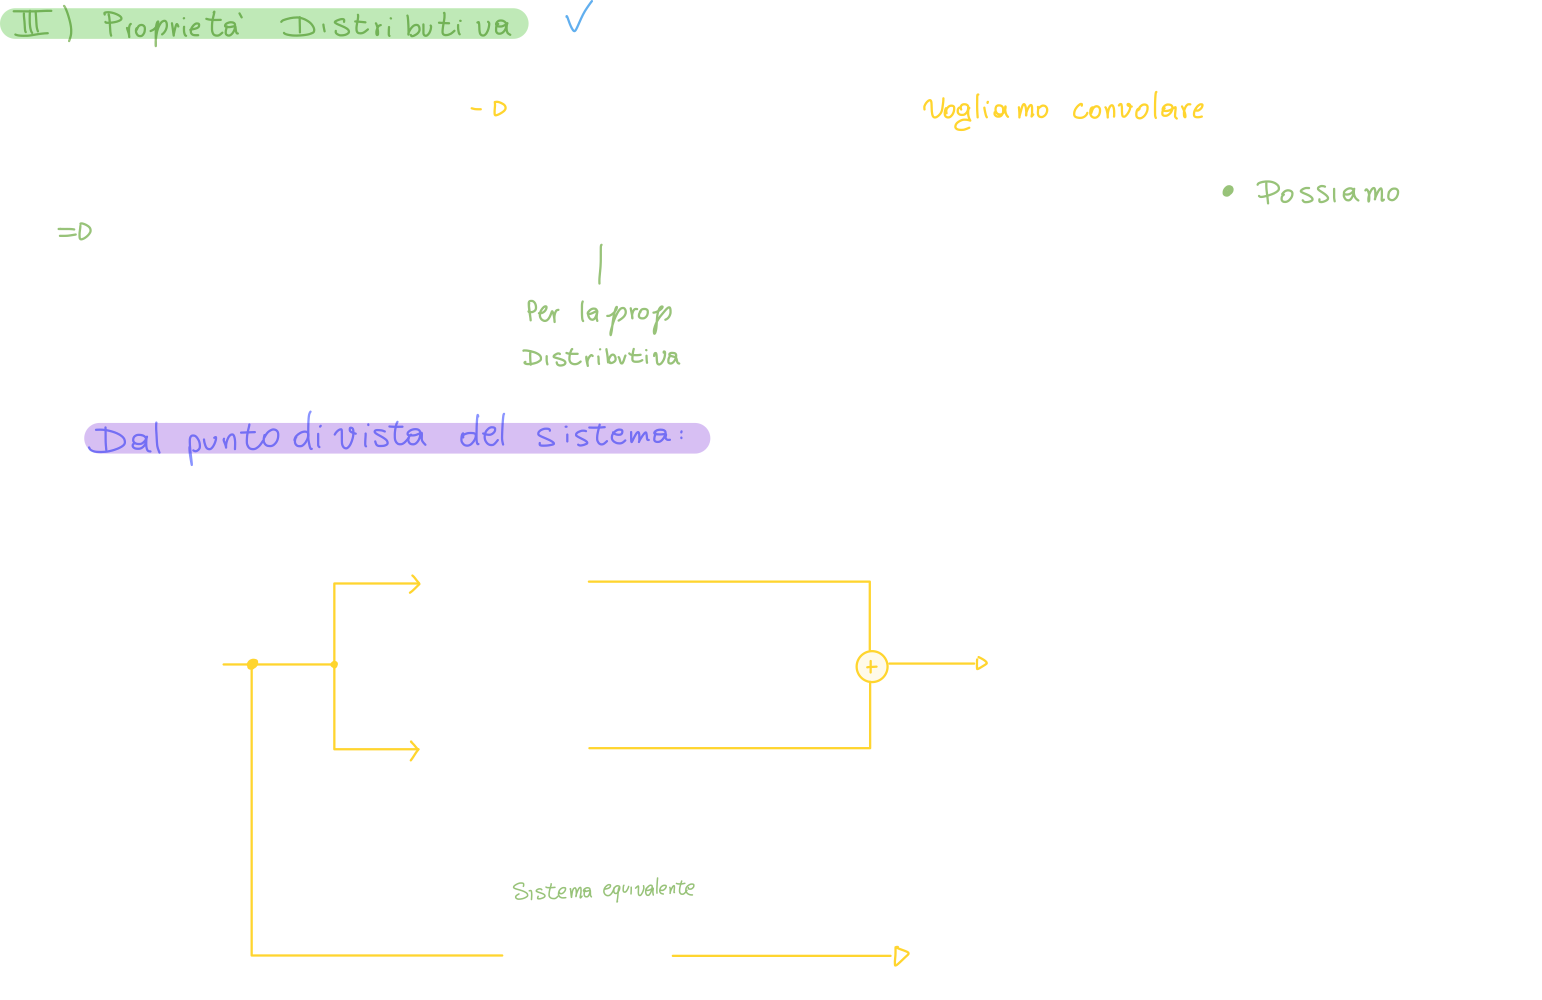 III) Proprietà Distributiva ✓
-D Vogliamo convolare
• Possiamo
=D
Per la prop
Distributiva
Dal punto di vista del sistema:
+
Sistema equivalente